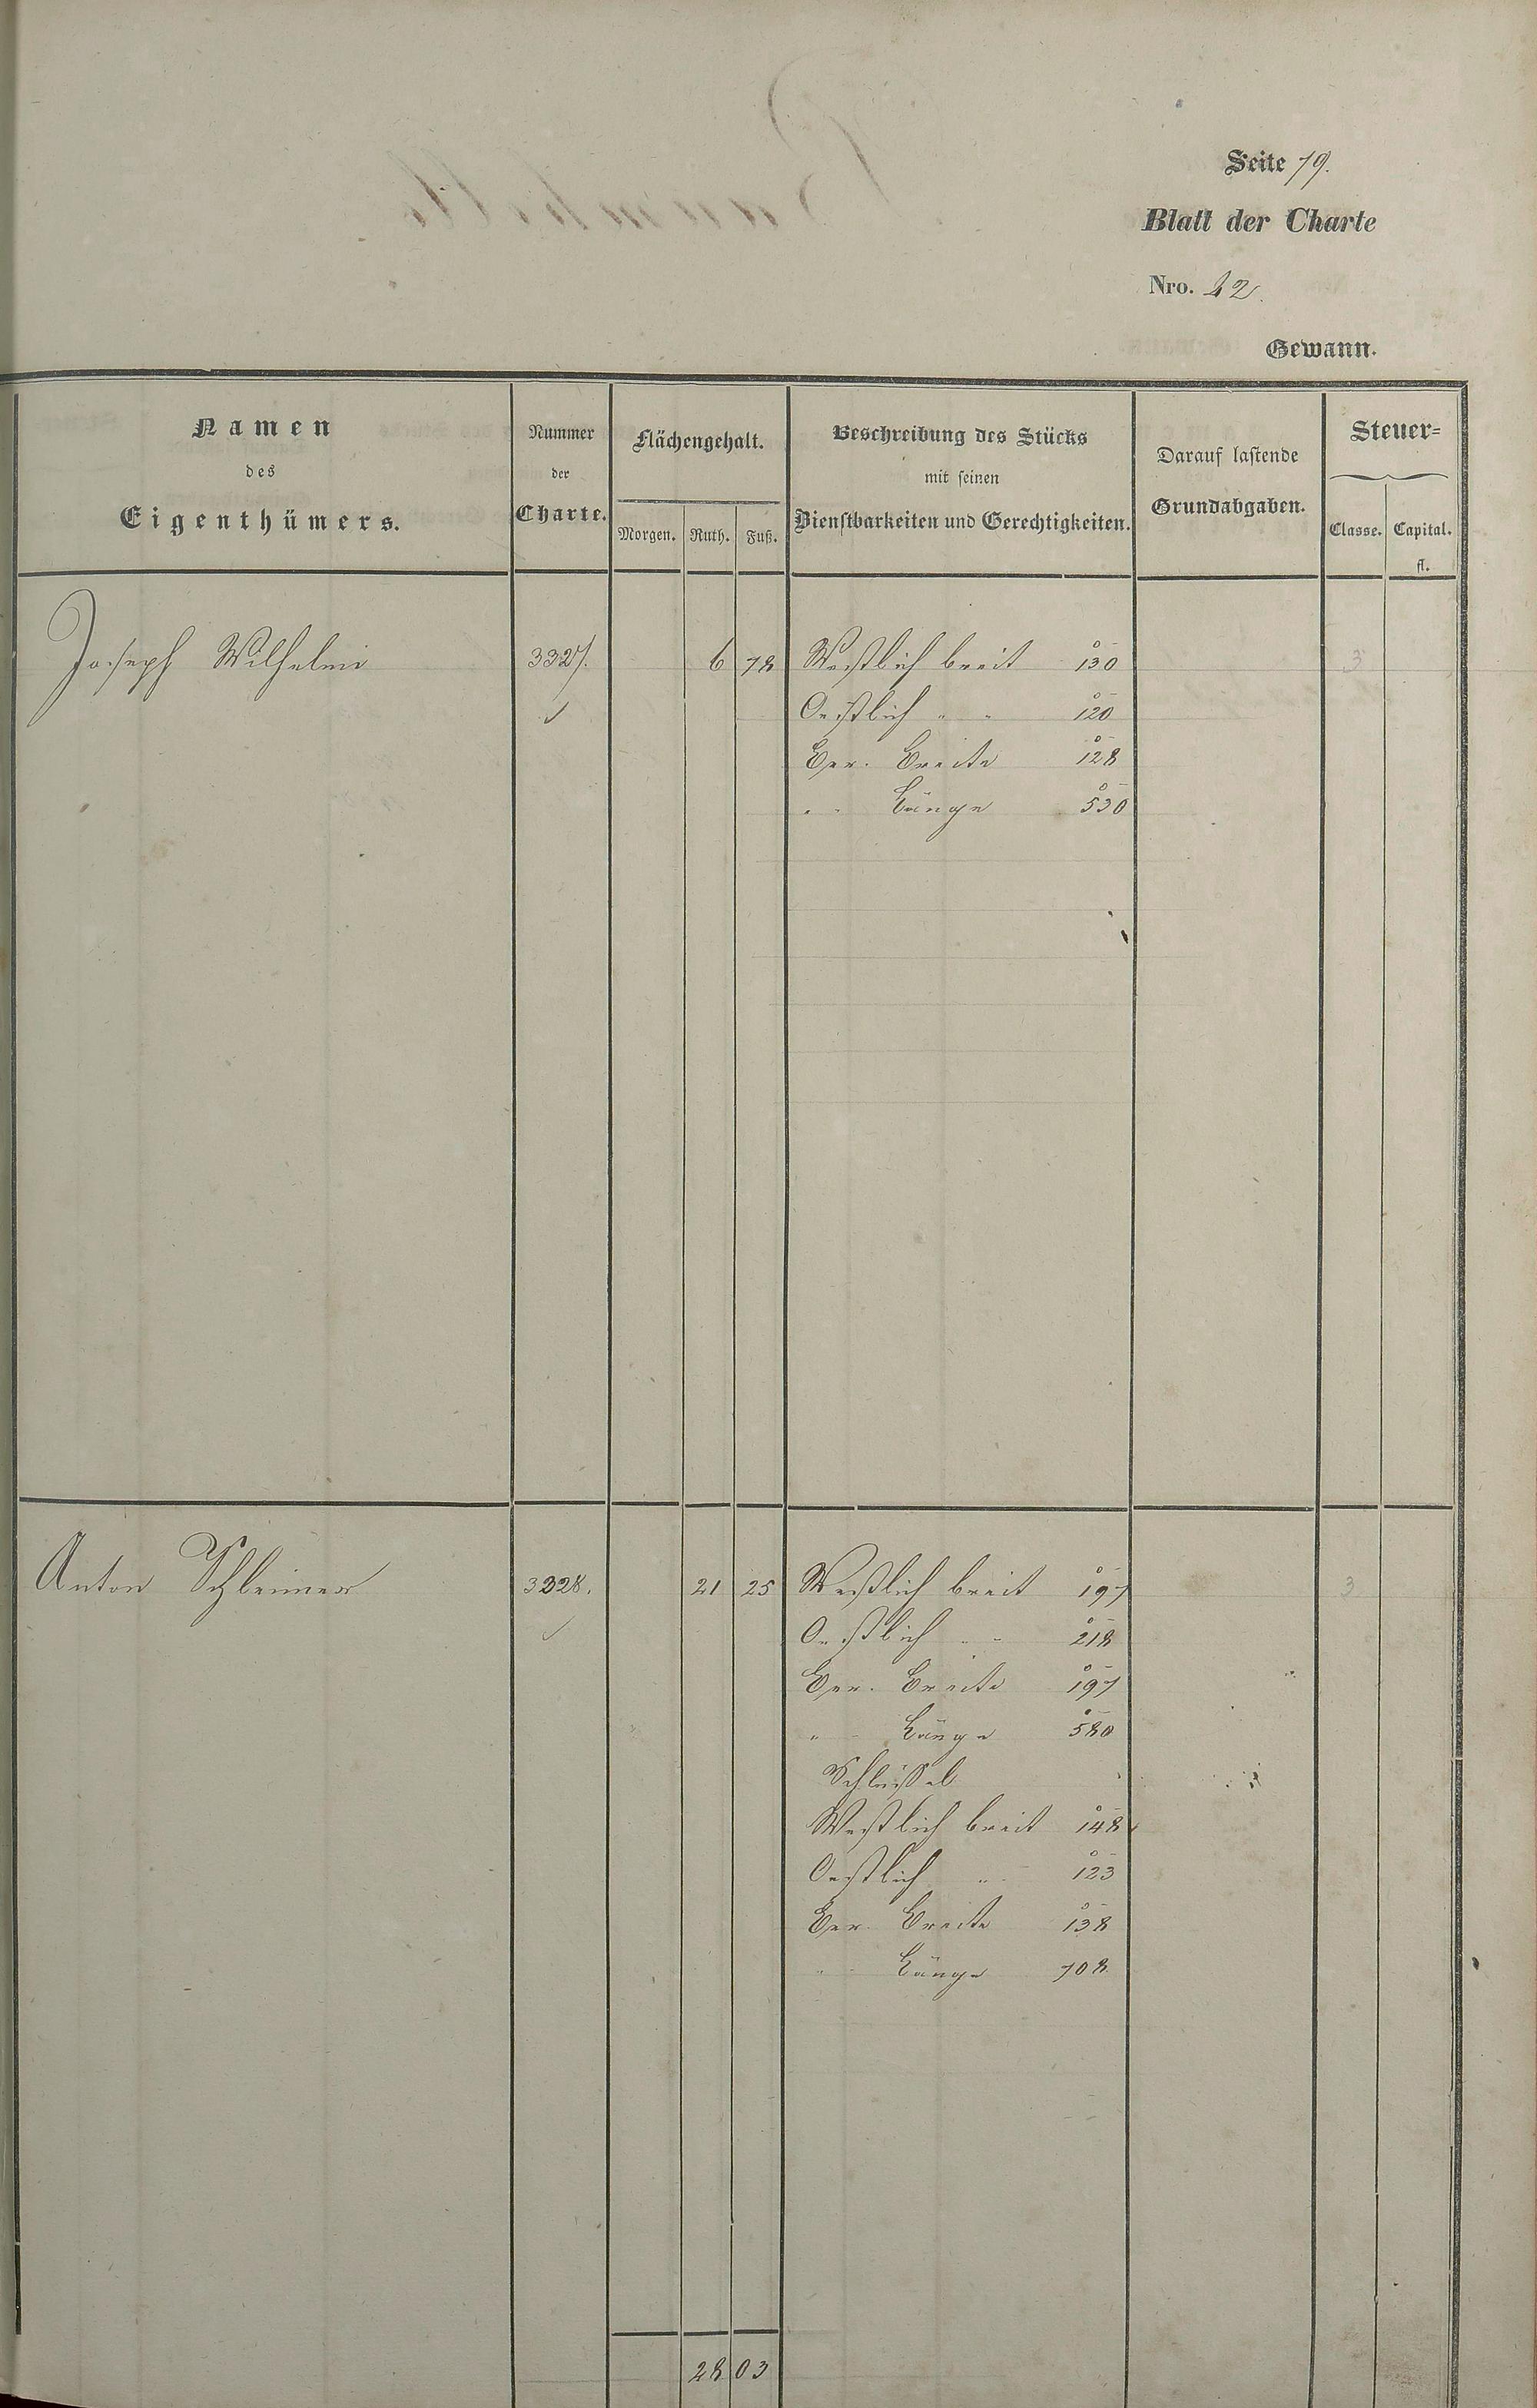 Seite 19.
Blatt der Charte
Nro. 22.
Gewann.
Namen
des
Eigenthümers.
Nummer
der
Charte.
Flächengehalt.
Morgen. Ruth. Fuß.
Beschreibung des Stücks
mit seinen
Dienstbarkeiten und Gerechtigkeiten.
Darauf lastende
Grundabgaben.
Steuer=
Classe. Capital.
fl.
Joseph Wilhelmi 3327. 6 78 Westlich breit 130 3
Oestlich " " 120
Ger. Breite 128
" " Länge 530
Anton Schleimer 3328. 21 25 Westlich breit 197 3
Oestlich " " 218
Ger. Breite 197
" " Länge 580
Schlüssel
Westlich breit 148
Oestlich " 123
Ger. Breite 138
" " Länge 708
28 03